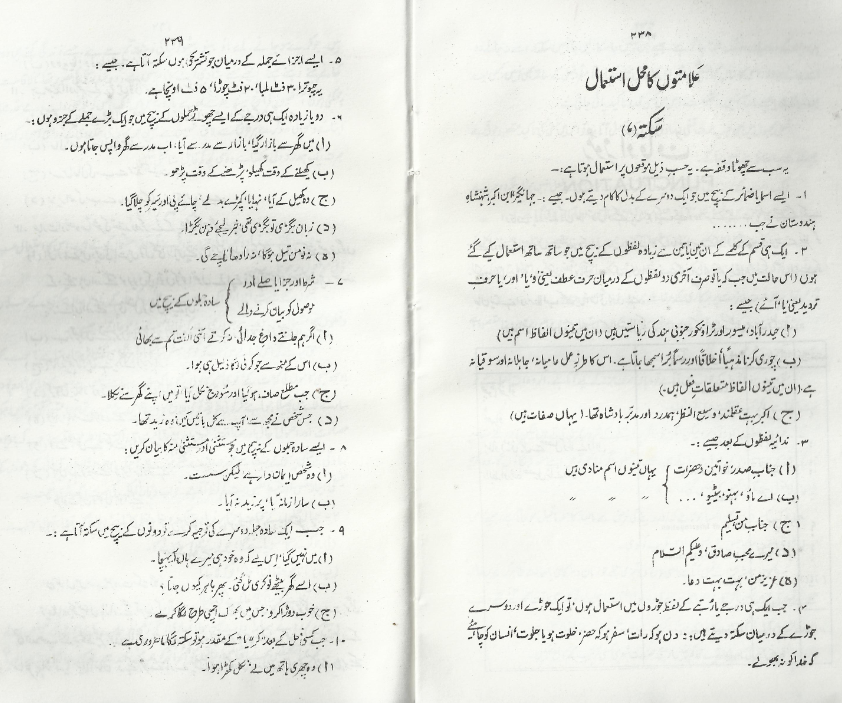 ۲۳۸
علامتوں کا محل استعمال
سکتہ (،)
یہ سب سے چھوٹا وقفہ ہے۔ یہ حسب ذیل موقعوں پر استعمال ہوتا ہے:۔
۱۔ ایسے اسما یا ضمائر کے بیچ میں جو ایک دوسرے کے بدل کا کام دیتے ہوں۔ جیسے:۔ جہانگیر، ابن اکبر، شہنشاہِ
ہندوستان نے جب ........
۲۔ ایک ہی قسم کے کلمے کے ان تین یا تین سے زیادہ لفظوں کے بیچ میں جو ساتھ ساتھ استعمال کیے گئے
ہوں (اس حالت میں جب کہ یا تو صرف آخری دو لفظوں کے درمیان حرف عطف یعنی 'و' یا 'اور' یا حرف
تردید یعنی 'یا' آئے) جیسے:
(ا) حیدرآباد، میسور اور ٹراونکور جنوبی ہند کی ریاستیں ہیں (ان میں تینوں الفاظ اسم ہیں)
(ب) چوری کرنا مذہباً، اخلاقاً اور رسماً برا سمجھا جاتا ہے۔ اس کا طرزِ عمل عامیانہ، جاہلانہ اور سوقیانہ
ہے (ان میں تینوں الفاظ متعلقات فعل ہیں۔)
(ج) اکبر بہت عقلمند، وسیع النظر، ہمدرد اور مدبر بادشاہ تھا۔ (یہاں صفات ہیں)
۳۔ ندائیہ لفظوں کے بعد جیسے:۔
(ا) جناب صدر، خواتین و حضرات } یہاں تینوں اسم منادی ہیں
(ب) اے ماؤ، بہنو، بیٹیو، ... } 〃 〃 〃 〃
(ج) جناب من، تسلیم
(د) میرے محب صادق، وعلیکم السّلام
(ہ) عزیز من، بہت بہت دعا۔
۴۔ جب ایک ہی درجے یا رتبے کے لفظ جوڑوں میں استعمال ہوں، تو ایک جوڑے اور دوسرے
جوڑے کے درمیان سکتہ دیتے ہیں:؛ دن ہو کہ رات، سفر ہو کہ حضر، خلوت ہو یا جلوت، انسان کو چاہئے
کہ خدا کو نہ بھولے۔
۲۳۹
۵۔ ایسے اجزائے جملہ کے درمیان جو تشریحی ہوں سکتہ آتا ہے۔ جیسے:
یہ چبوترا، ۳۰ فٹ لمبا، ۲۰ فٹ چوڑا، ۵ فٹ اونچا ہے۔
۶۔ دو یا زیادہ ایک ہی درجے کے ایسے چھوٹے جملوں کے بیچ میں جو ایک بڑے جملے کے جزو ہوں:۔
(ا) میں گھر سے بازار گیا، بازار سے مدرسے آیا، اب مدرسے سے گھر واپس جاتا ہوں۔
(ب) کھیلنے کے وقت کھیلو، پڑھنے کے وقت پڑھو۔
(ج) وہ کھیل کے آیا، نہایا، کپڑے بدلے، چائے پی اور سیر کو چلا گیا۔
(د) زبان بگڑی تو بگڑی تھی، خبر لیجے دہن بگڑا۔
(ہ) نہ نو من تیل ہوگا، نہ رادھا ناچے گی۔
۷۔ شرط اور جزا یا صلے اور
موصول کو بیان کرنے والے } سادہ جملوں کے بیچ میں
(ا) اگر ہم جانتے داغِ جدائی، نہ کرتے اتنی الفت تم سے بھائی
(ب) اس کے منہ سے جو کوئی لگا، ذلیل ہی ہوا۔
(ج) جب مطلع صاف ہوگیا اور سورج نکل آیا، تو میں اپنے گھر سے نکلا۔
(د) جس شخص نے مجھ سے، آپ سے کل باتیں کیں، وہ زید تھا۔
۸۔ ایسے سادہ جملوں کے بیچ میں جو مستثنیٰ اور مستثنیٰ منہ کا بیان کریں:
(ا) وہ شخص ایمان دار ہے، لیکن سست۔
(ب) سارا زمانہ آیا، پر زید نہ آیا۔
۹۔ جب ایک سادہ جملہ دوسرے کی توجیہ کرے تو دونوں کے بیچ میں سکتہ آتا ہے:۔
(ا) میں نہیں گیا، اس لیے کہ وہ خود ہی میرے ہاں آ پہنچا۔
(ب) اسے گھر بیٹھے نوکری مل گئی، پھر باہر کیوں جاتا؟
(ج) خوب دوڑا کرو، جس میں بھوک اچھی طرح لگا کرے۔
۱۰۔ جب کسی فعل کے بعد 'کر' یا 'کے' مقدر ہو تو سکتہ لگانا ضروری ہے۔
(ا) وہ چھری ہاتھ میں لے، نکل کھڑا ہوا۔